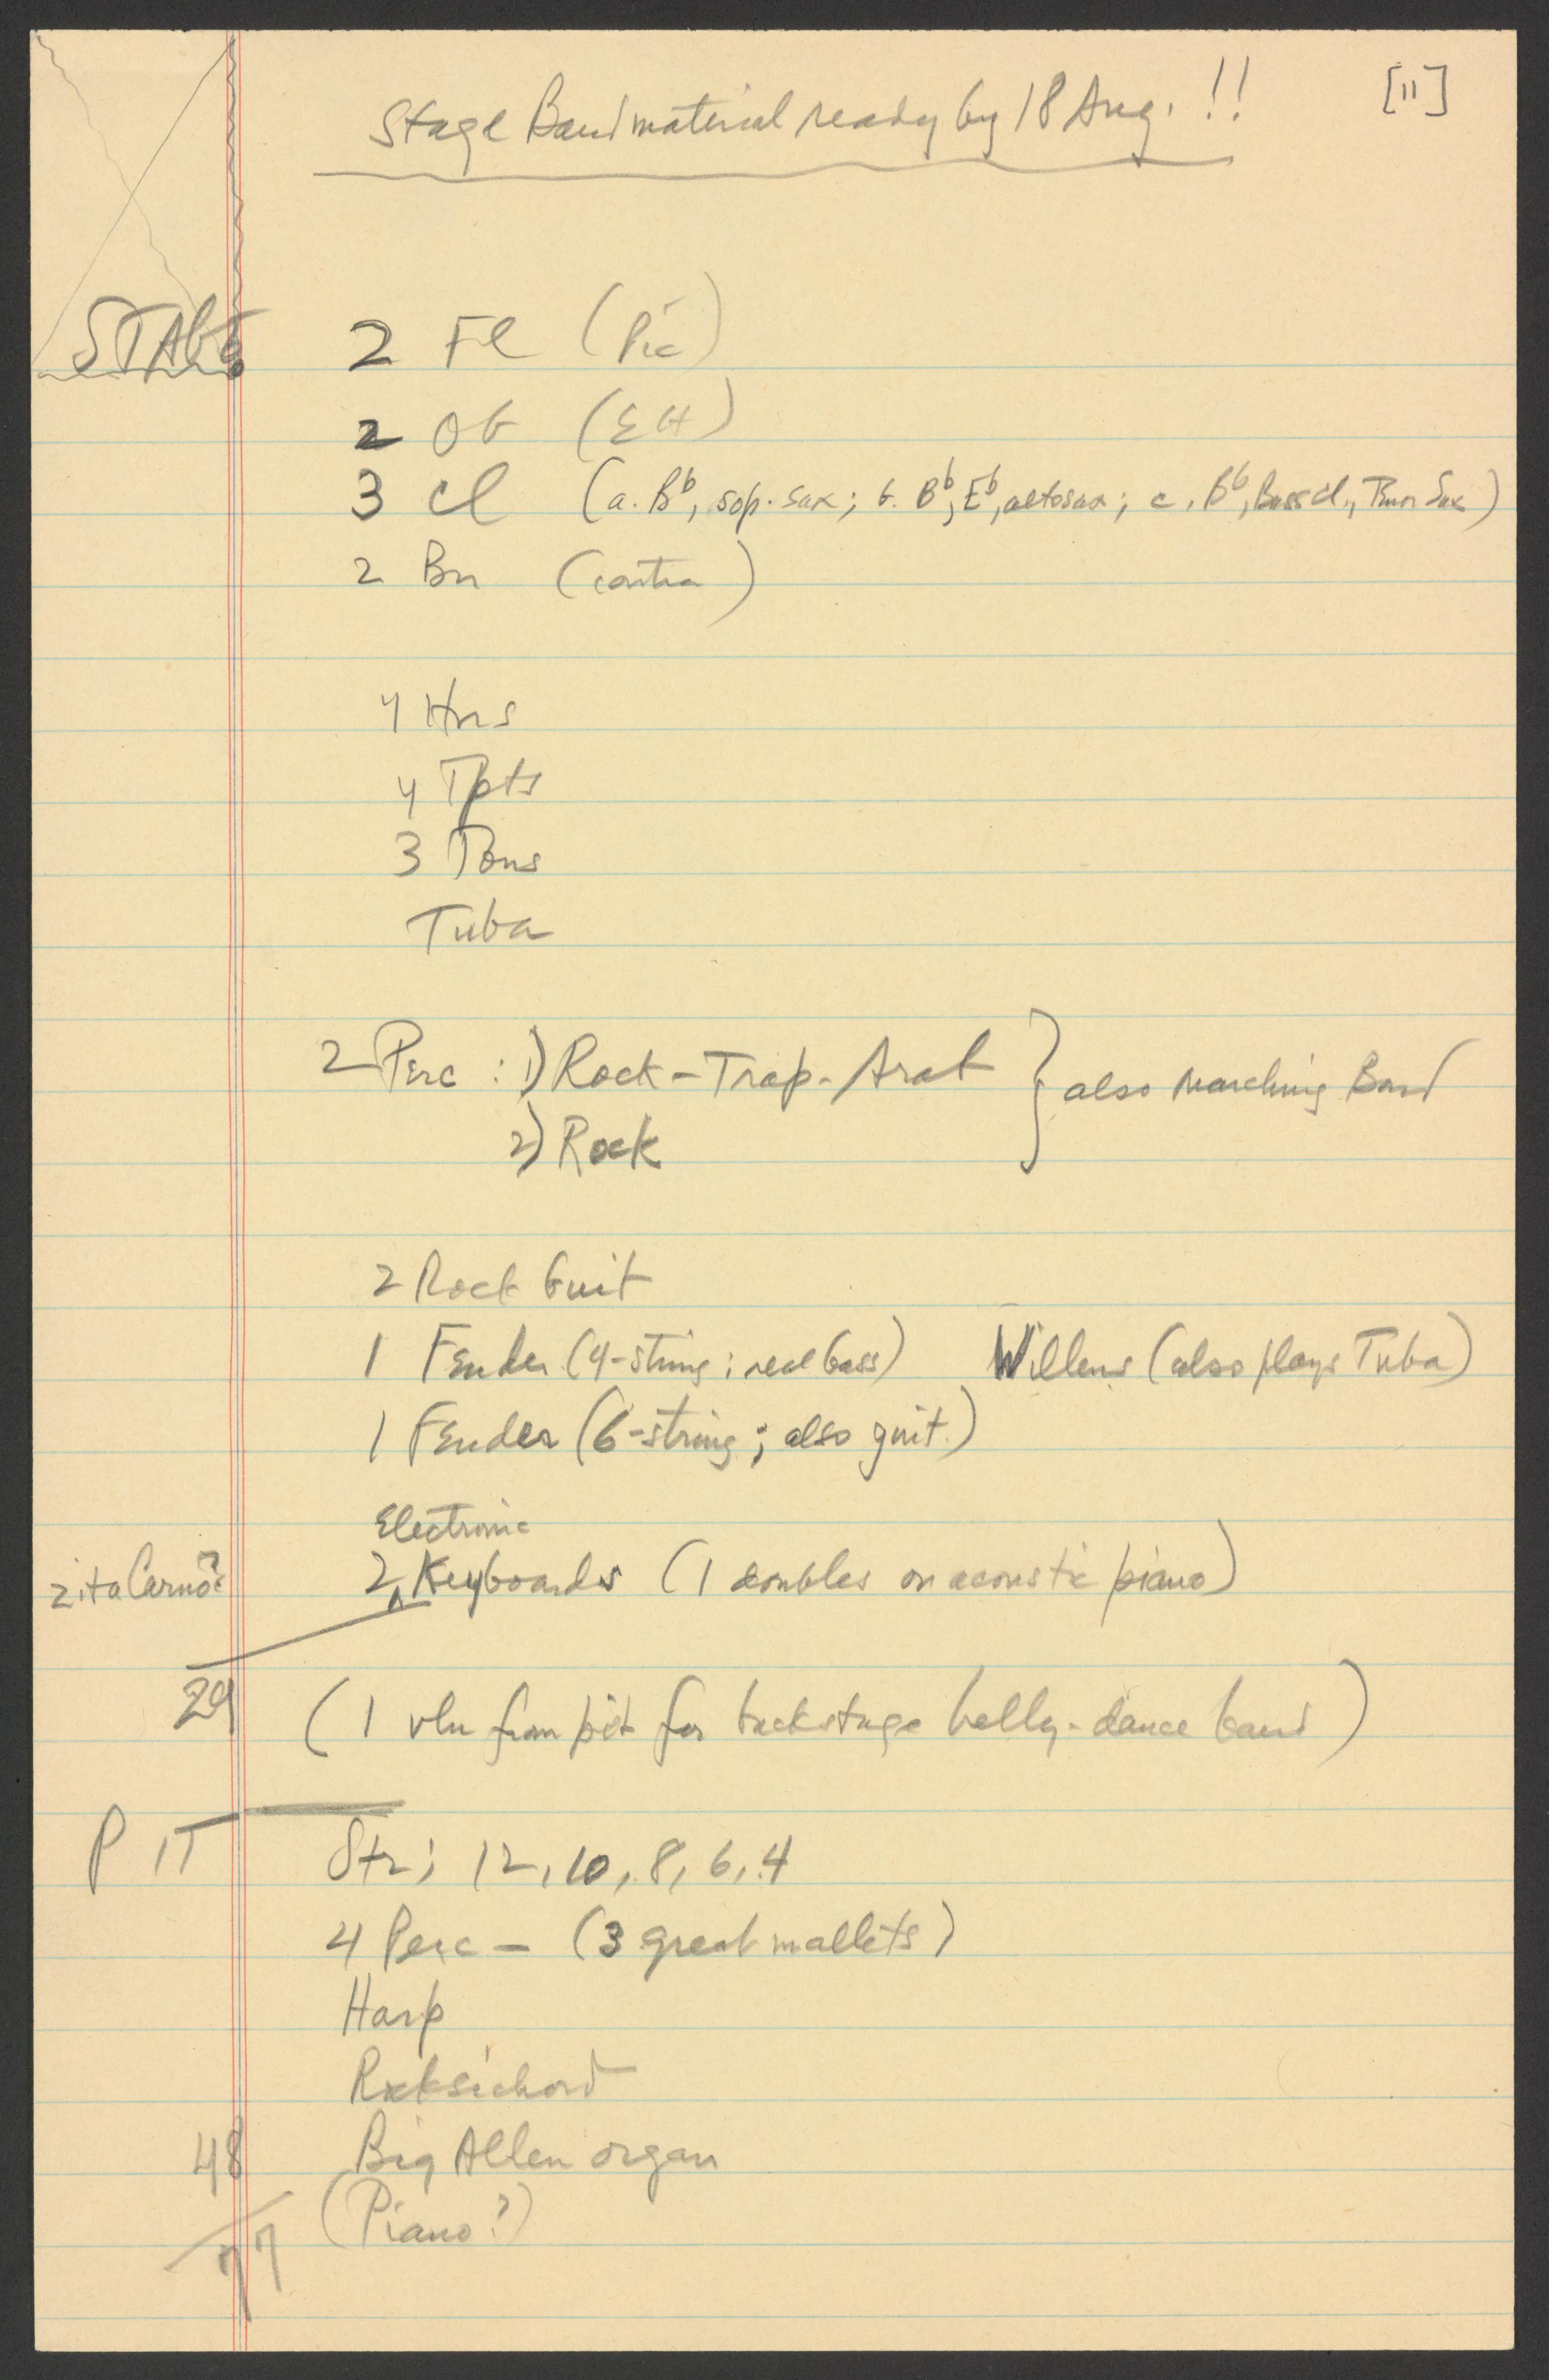 [11]
Stage Band material ready by 18 Aug. !!
STAGE
2 Fl (Pic)
2 Ob (EH)
3 Cl (a. B♭, sop. sax; b. B♭, E♭, altosax; c. B♭, Bass cl., Tenor Sax)
2 Bn (contra)
4 Hns
4 Tpts
3 Tbns
Tuba
2 Perc : 1) Rock-Trap-Arab } also Marching Band
2) Rock
2 Rock Guit
1 Fender (4-string; real bass) Willens (also plays Tuba)
1 Fender (6-string; also guit.)
Electronic
Zita Carno? 2 ^ Keyboards (1 doubles on acoustic piano)
29 (1 vln from pit for backstage belly-dance band)
PIT Str; 12, 10, 8, 6, 4
4 Perc - (3 great mallets)
Harp
Rocksichord
48 Big Allen organ
(Piano?)
77